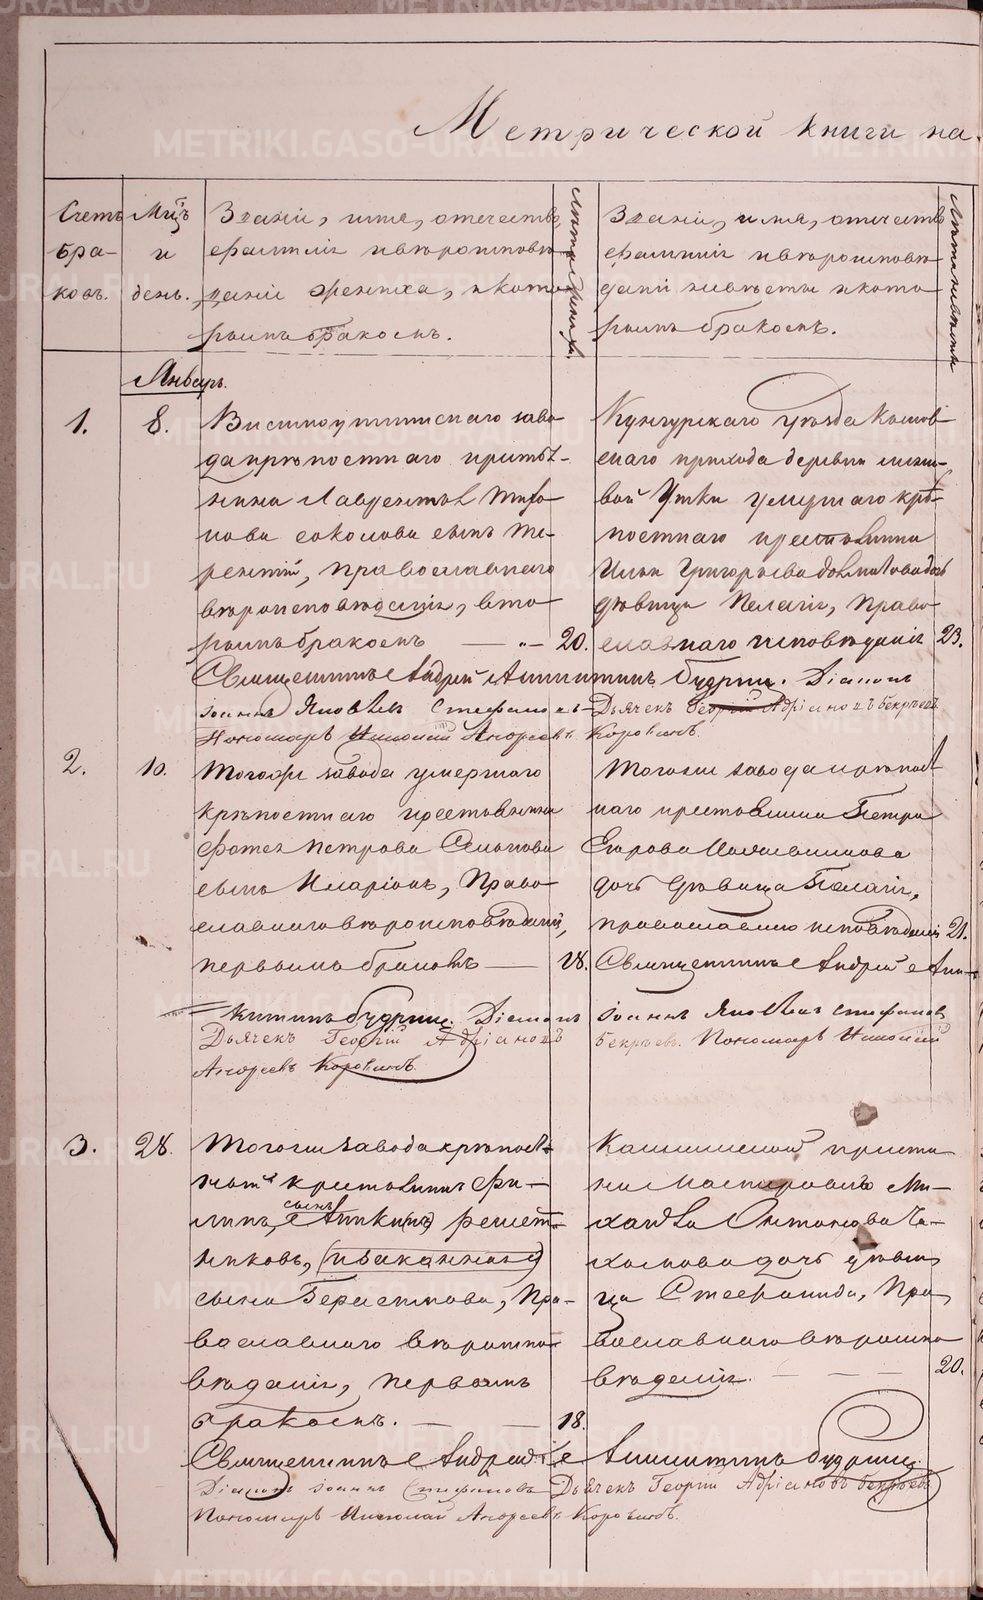 Метрической книги на
Счетъ
бра-
ковъ.
Мцъ
и
день.
Званіе, имя, отечество,
фамилія и вѣроисповѣ-
даніе жениха, и кото-
рымъ бракомъ.
Лѣта жениха.
Званіе, имя, отечество
фамилія и вѣроисповѣ-
даніе невѣсты и кото-
рымъ бракомъ.
Лѣта невѣсты
Январь.
1.
8.
заво-
да крѣпостнаго
Лаврентья
нова Соколова сынъ Те-
рентій, православнаго
вѣроисповѣданія, вто-
рымъ бракомъ — „ — 20.
Кунгурскаго уѣзда
скаго прихода деревни
вой Утки умершаго крѣ-
постнаго крестьянина
Ильи Григорьева дочь
дѣвица Пелагія, Право-
славнаго исповѣданія 23.
Священникъ Андрей Аникитинъ Будринъ. Діаконъ
Іоаннъ Яковлевъ Стефановъ Дьячекъ Георгій Адріановъ Бекрѣевъ
Пономарь Николай Андреевъ Коровинъ.
2.
10.
Тогоже завода умершаго
крѣпостнаго крестьянина
Фотея Петрова
сынъ Иларіонъ, Право-
славнаго вѣроисповѣданія,
первымъ бракомъ — 18.
Тогоже завода крѣпост-
наго крестьянина Петра
Егорова
дочь дѣвица Пелагія,
православнаго исповѣданія 21.
Священникъ Андрей Ани-
китинъ Будринъ. Діаконъ Іоаннъ Яковлевъ Стефановъ
Дьячекъ Георгій Адріановъ Бекрѣевъ. Пономарь Николай
Андреевъ Коровинъ.
3.
28.
Тогоже завода крѣпост-
ный крестьянинъ Фи-
липъ, сынъ Аникинъ Решет-
никовъ,
сына Герасимова, Пра-
вославнаго вѣроиспо-
вѣданія, первымъ
бракомъ. — — 18.
пристани
Ми-
хайла Антонова
дочь дѣви-
ца Степанида, Пра-
вославнаго вѣроиспо-
вѣданія. — — — 20.
Священникъ Андрей Аникитинъ Будринъ.
Діаконъ Іоаннъ Стефановъ Дьячекъ Георгій Адріановъ Бекрѣевъ
Пономарь Николай Андреевъ Коровинъ.
METRIKI.GASO-URAL.RU